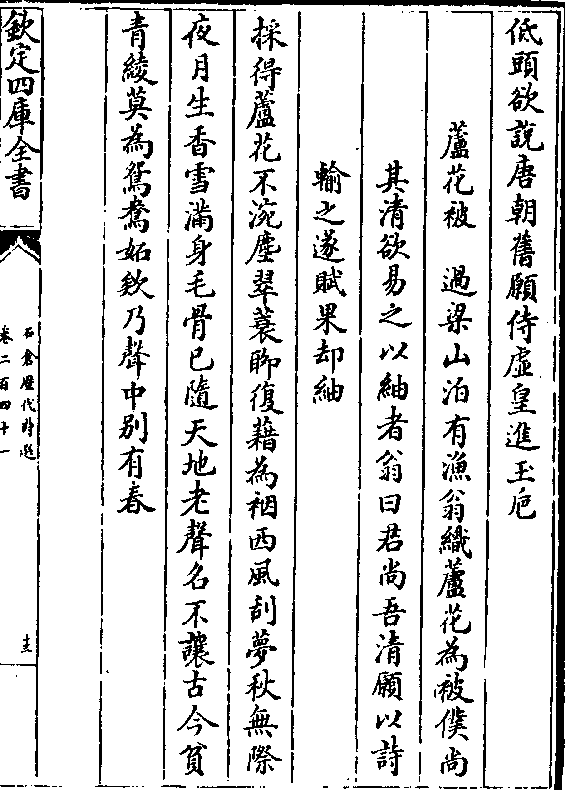 低頭欲說唐朝舊願侍虛皇進玉卮
蘆花被　過梁山泊有漁翁織蘆花為被僕尚
其清欲易之以紬者翁曰君尚吾清願以詩
輸之遂賦果却紬
採得蘆花不涴塵翠蓑聊復藉為裀西風刮夢秋無際
夜月生香雪滿身毛骨已隨天地老聲名不讓古今貧
青綾莫為鴛鴦妬欸乃聲中别有春
欽定四庫全書
石倉歷代詩選
卷二百四十一